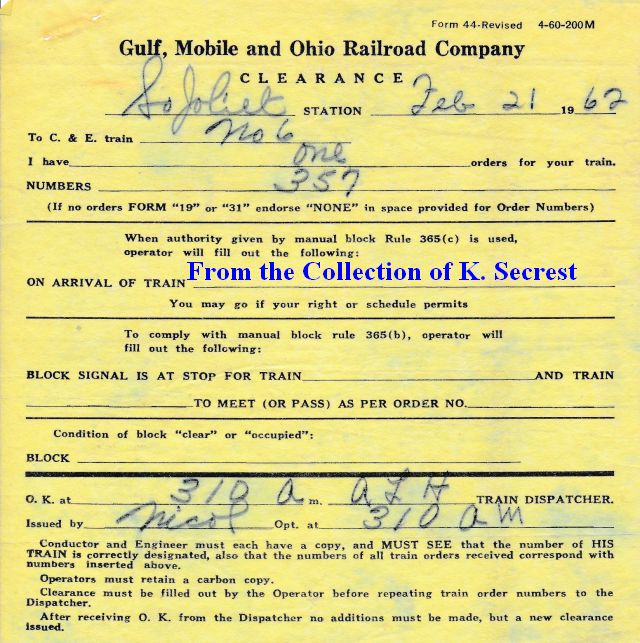 Form 44-Revised 4-60-200M
Gulf, Mobile and Ohio Railroad Company
CLEARANCE
So Joliet STATION Feb 21 1962
To C. & E. train No 6
I have one orders for your train.
NUMBERS 357
(If no orders FORM "19" or "31" endorse "NONE" in space provided for Order Numbers)
When authority given by manual block Rule 365(c) is used,
operator will fill out the following:
ON ARRIVAL OF TRAIN From the Collection of K. Secrest
You may go if your right or schedule permits
To comply with manual block rule 365(b), operator will
fill out the following:
BLOCK SIGNAL IS AT STOP FOR TRAIN AND TRAIN
TO MEET (OR PASS) AS PER ORDER NO.
Condition of block "clear" or "occupied":
BLOCK
O. K. at 310 A m. ALH TRAIN DISPATCHER.
Issued by Nicol Opt. at 310 AM
Conductor and Engineer must each have a copy, and MUST SEE that the number of HIS
TRAIN is correctly designated, also that the numbers of all train orders received correspond with
numbers inserted above.
Operators must retain a carbon copy.
Clearance must be filled out by the Operator before repeating train order numbers to the
Dispatcher.
After receiving O. K. from the Dispatcher no additions must be made, but a new clearance
issued.